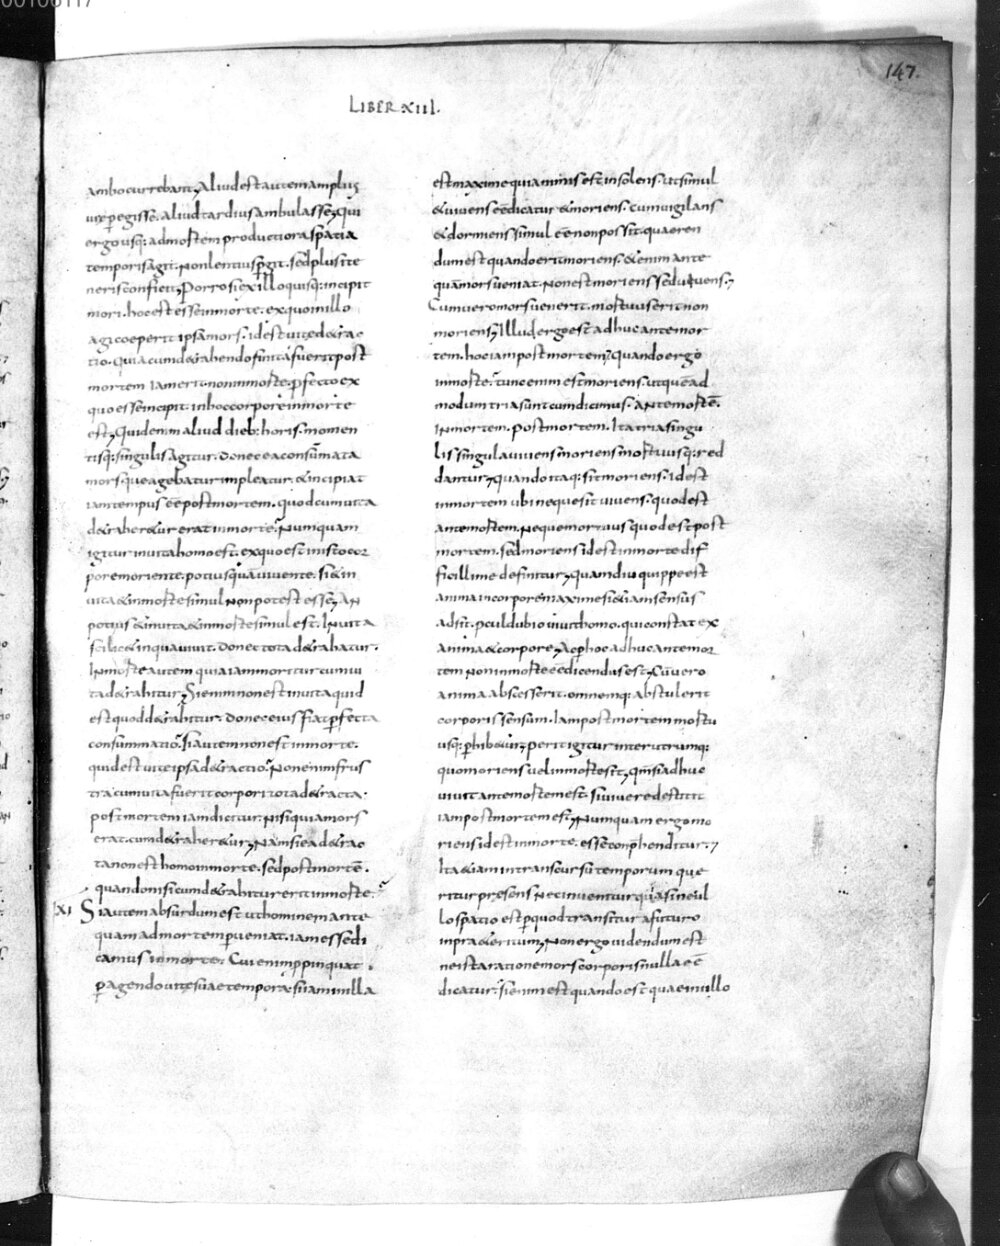 147.
LIBER XIII.
ambo currebant. Aliud est autem amplius
uiae pegisse. aliud tardius ambulasse. Qui
ergo usq: ad mortem productiora spatia
temporis agit. Non lentius pgit. sed plus ite
neris conficit. Porro si ex illo quisq: incipit
mori. hoc est esse in morte. ex quo in illo
agi coeperit ipsa mors. idest uitę detrac
tio. Quia cum detrahendo finita fuerit post
mortem iam erit. non in morte. pfecto ex
quo esse incipit. in hoc corpore in morte
est. Quid enim aliud dieb: horis. momen
tisq: singulis agitur. donec ea consūmata
mors. quę agebatur impleatur. & incipiat
iam tempus eē post mortem. quod cum uita
detraheretur erat in morte. Numquam
igitur in uita homo est. ex quo est in isto cor
pore moriente. potius quā uiuente. si & in
uita & in morte simul non potest esse. An
potius & in uita & in morte simul est. In uita
scilic& in qua uiuit. donec tota detrahatur.
In morte autem quia iam moritur cum ui
ta detrahitur. Si enim non est in uita quid
est quod detrahitur. donec eius fiat pfecta
consummatio. si autem non est in morte.
quid est uitę ipsa detractio. Non enim frus
tra cum uita fuerit corpori tota detracta.
post mortem iam dicitur. Nisi quia mors
erat. cum detraheretur. Nam si ea detrac
ta non est homo in morte. sed post mortē.
quando nisi cum detrahitur erit in morte.
XI. Si autem absurdum est ut hominem ante
quam ad mortem pueniat. iam esse di
camus in morte. Cui enim ppinquat
pagendo uitę suae tempora. si iam in illa
est maxime quia nimis est insolens. ut simul
& uiuens eē dicatur & moriens. cum uigilans
& dormiens simul eē non possit. quaeren
dum est quando erit moriens. & enim ante
quā mors ueniat. Non est moriens sed uiuens.
Cum uero mors uenerit. mortuus erit non
moriens. Illud ergo est adhuc ante mor
tem. hoc iam post mortem. Quando ergo
in morte. tunc enim est moriens. ut quēad
modum tria sunt cum dicimus. Ante mortē.
In mortem. post mortem. Ita tria singu
lis singula uiuens moriens mortuusq: red
dantur. quando itaq: sit moriens. idest
in mortem ubi neque sit uiuens. quod est
ante mortem. Neque mortuus quod est post
mortem. sed moriens idest in morte dif
ficillime definitur. quamdiu quippe est
anima in corpore maxime si & iam sensus
adsit. pculdubio uiuit homo. qui constat ex
anima & corpore. Ac p hoc adhuc ante mor
tem Non in morte eē dicendus est. Cū uero
anima abscesserit. omnemq: abstulerit
corporis sensum. Iam post mortem mortu
usq: phibetur. perit igitur inter utrumq:
quo moriens uel in morte sit. qm̄ si adhuc
uiuit ante mortem est. si uiuere destitit
iam post mortem est. Numquam ergo mo
riens idest in morte. esse conphenditur.
Ita & iam in transcursu temporum que
ritur presens nec inuenitur quia sine ul
lo spatio est p quod transitur a futuro
in praeteritum. Non ergo uidendum est
ne ista ratione mors corporis nulla eē
dicatur. si enim est quando est quae in ullo